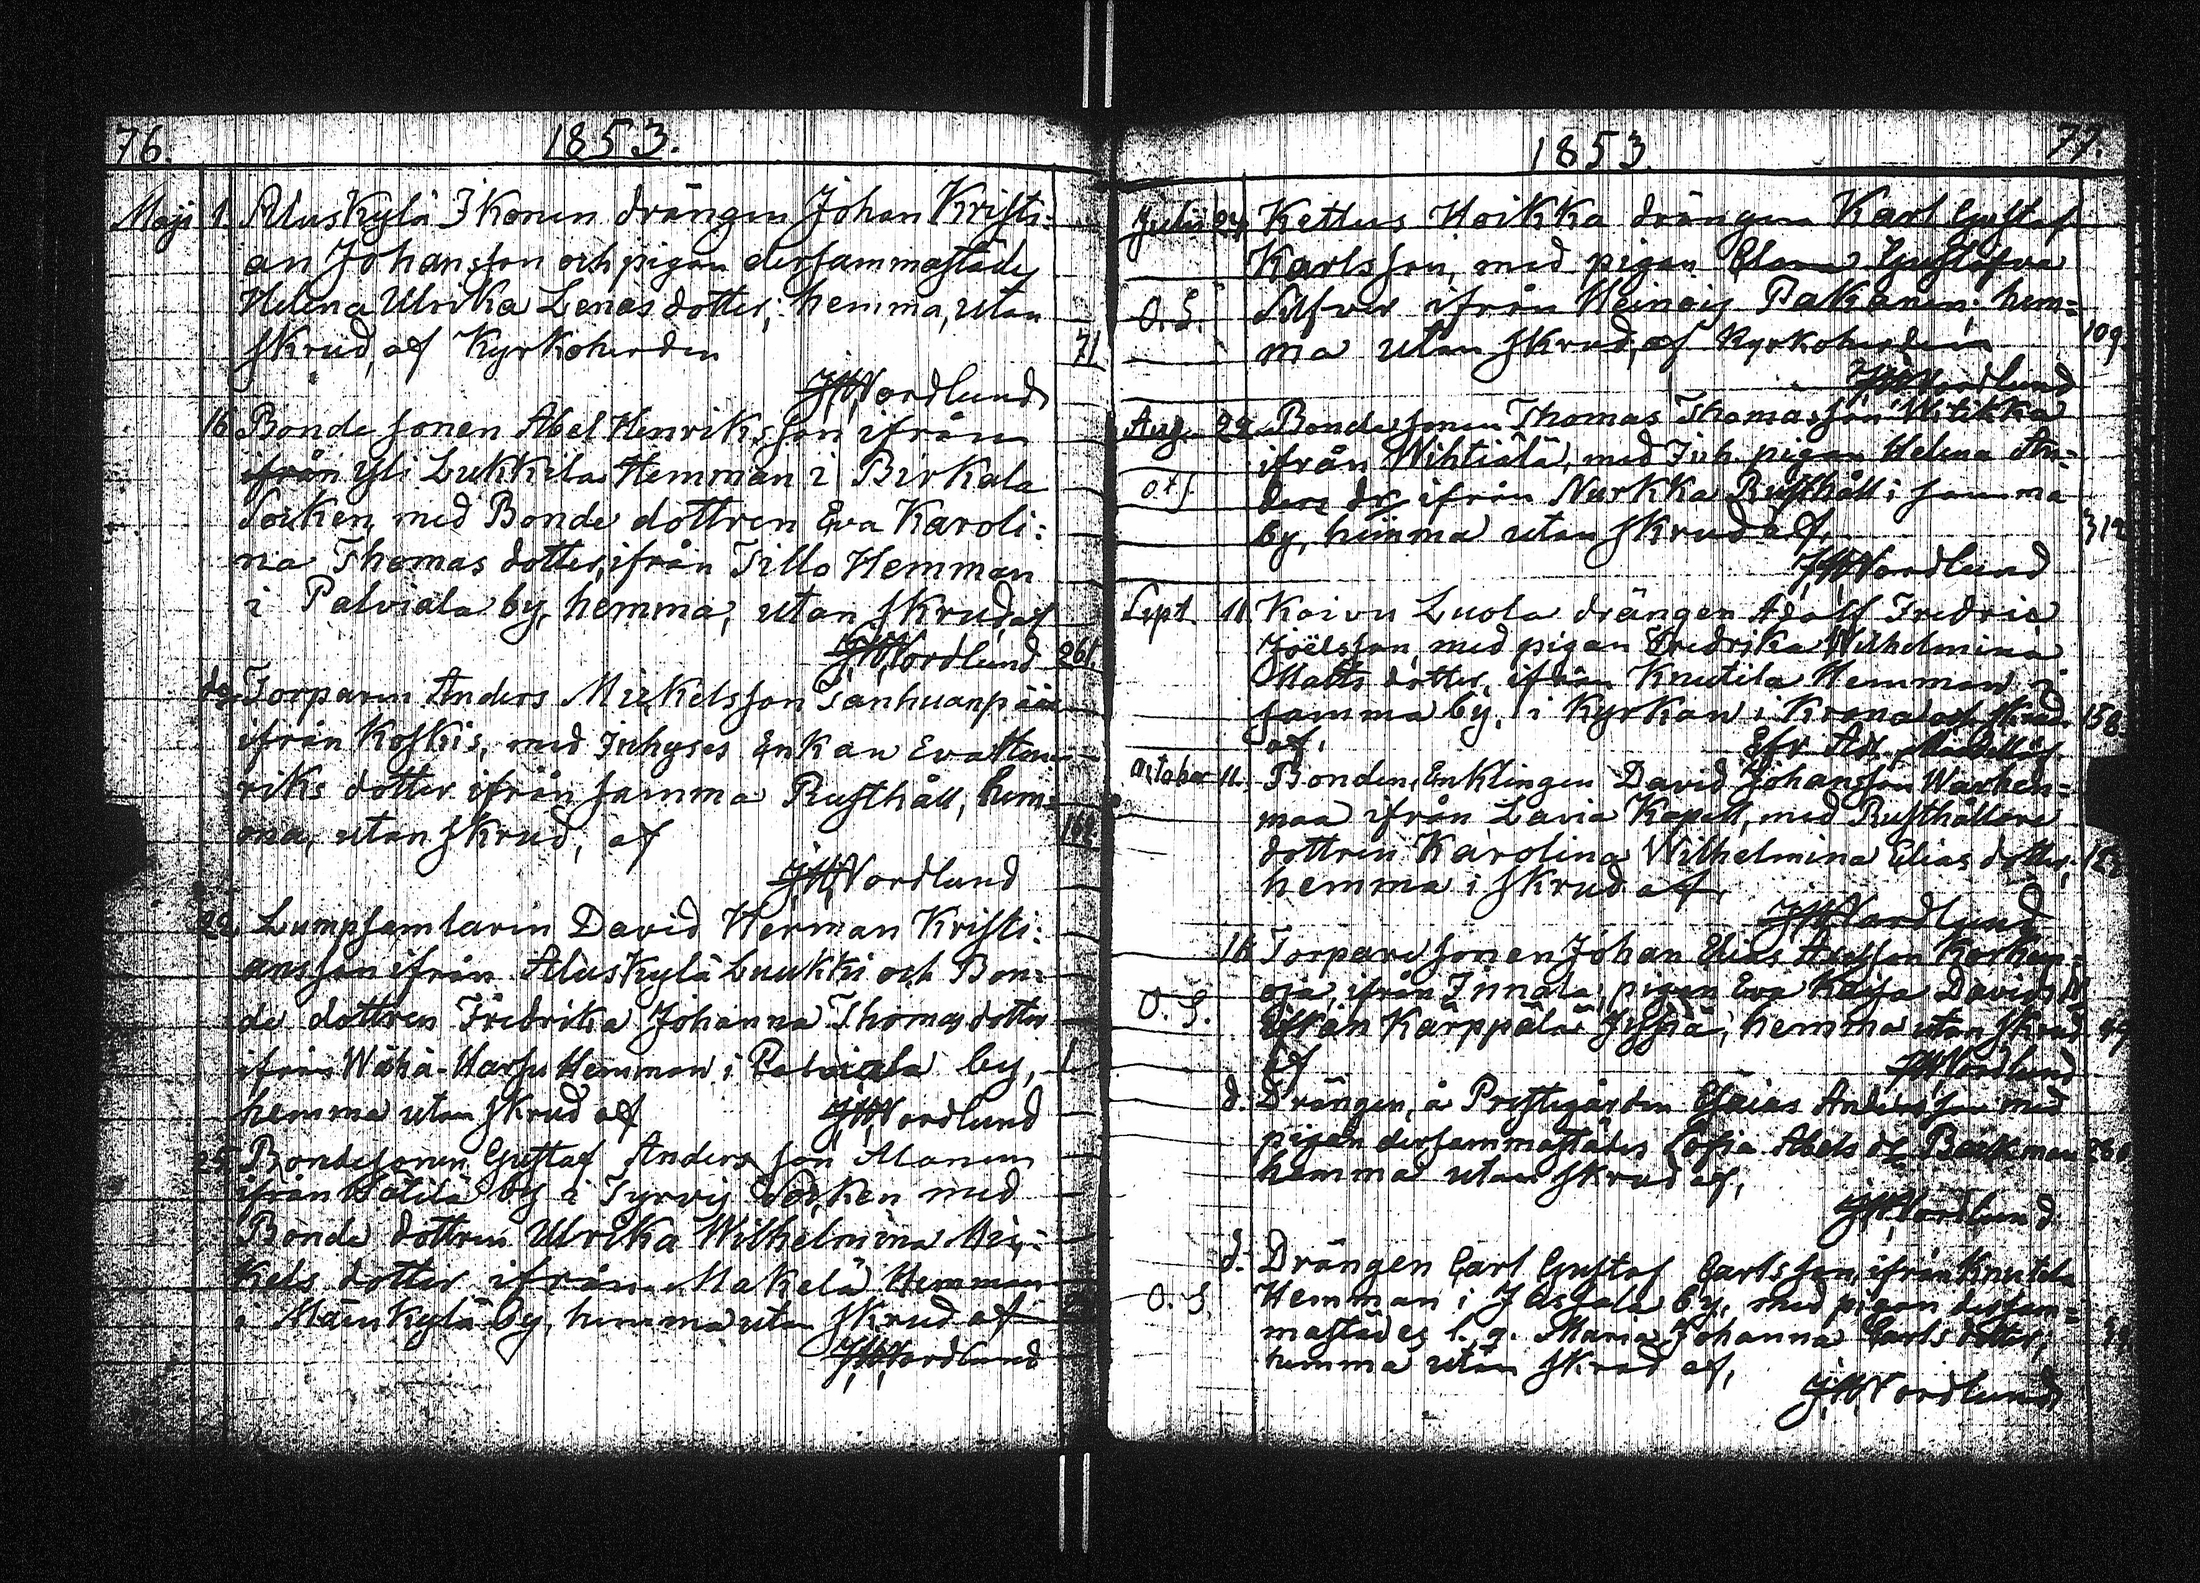 76. 1853.
Maji 1. Aluskylä Ikonen drängen Johan Kristi-
an Johansson och pigan dersammastädes
Helena Ulrika Lenasdotter; hemma, utan
skrud, af Kyrkoherden 71.
JWNordlund
16 Bonde sonen Abel Henriksson ifrån
ifrån Yli Lukkila Hemman i Birkala
Socken, med Bonde dottren Eva Karoli-
na Thomas dotter, ifrån Tillo Hemman
i Palviala by, hemma, utan skrud, af
JWNordlund 261.
Torparen Anders Mickelsson Tanhuanpää
ifrån Koskis, med Inhyses Enkan Eva Hen-
riks dotter ifrån samma Rusthåll, hem-
ma, utan skrud, af
JWNordlund
22 Lumpsamlaren David Herman Kristi-
ansson ifrån Aluskylä Luukki och Bon-
de dottren Fredrika Johanna Thomas dotter
ifrån Wähä-Harju Hemman i Palviala by,
hemma utan skrud af JWNordlund
Bondesonen Gustaf Andersson Manen
ifrån by i Tyrvis Socken med
Bonde dottren Ulrika Wilhelmina Mic-
kels dotter ifrån Makelä Hemman
i by, hemma utan skrud af
JWNordlund
1853 77.
Julii 24 Kettus Hoikka drängen Karl Gustaf
Karlsson, med pigan Gustafva
O.S. Silfver ifrån Heinois Pakanen; hem-
ma utan skrud, af Kyrkoherden 109.
JWNordlund
Aug. 22 Bondesonen Thomas Thomasson Witikka
ifrån Wihtiälä, med Inh. pigan Helena An-
ders dr ifrån Nurkka Rusthåll i samma
by, hemma utan skrud af, 312
JWNordlund
Sept. 11 Koivu Luola drängen Adolf Fredric
Joëlsson, med pigan Fredrika Wilhelmina
Matts dotter, ifrån Knutila Hemman i
samma by, i Kyrkan i Krona och skrud 158.
af.
October 11. Bonden, Enklingen David Johansson Warhen-
maa ifrån Lavia Kapell, med Rusthållare
dottren Karolina Wilhelmina Elias dotter;
hemma i skrud af,
JWNordlund
16 Torpare sonen Johan Elias
oja, ifrån Innala, pigan Eva Kaisa Davids dr
O.S. ifrån Karppälä Jussia, hemma utan skrud
af JWNordlund
d. Drängen, å Prestegården Esaias Andersson med
pigan dersammastädes Sofia Abels dr Bäckman
hemma utan skrud af,
JWNordlund
d. Drängen Carl Gustaf Carlsson, ifrån Knutila
O.S. Hemman i by, med pigan dersam-
mastädes l. q. Maria Johanna Carls dotter;
hemma utan skrud af,
JWNordlund